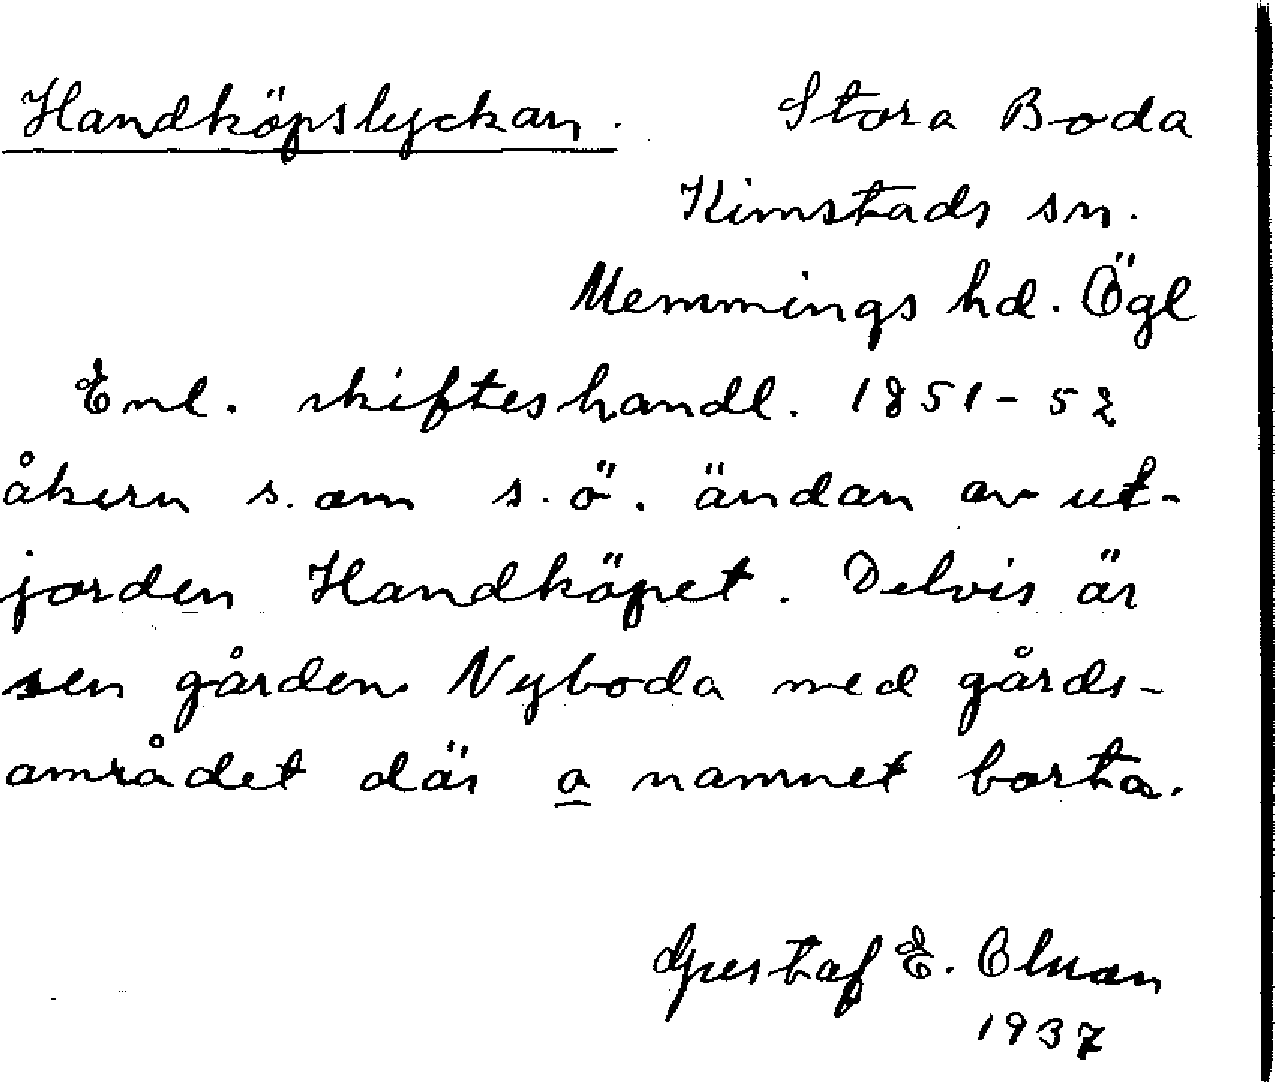 Handköpslyckan. Stora Boda
Kimstads sn.
Memmings hd. Ögl
Enl. skifteshandl. 1851-52
åkern s. om s.ö. ändan av ut-
jorden Handköpet. Delvis är
sen gården Nyboda med gårds-
området där o namnet borta.
Gustaf E. Olsson
1937